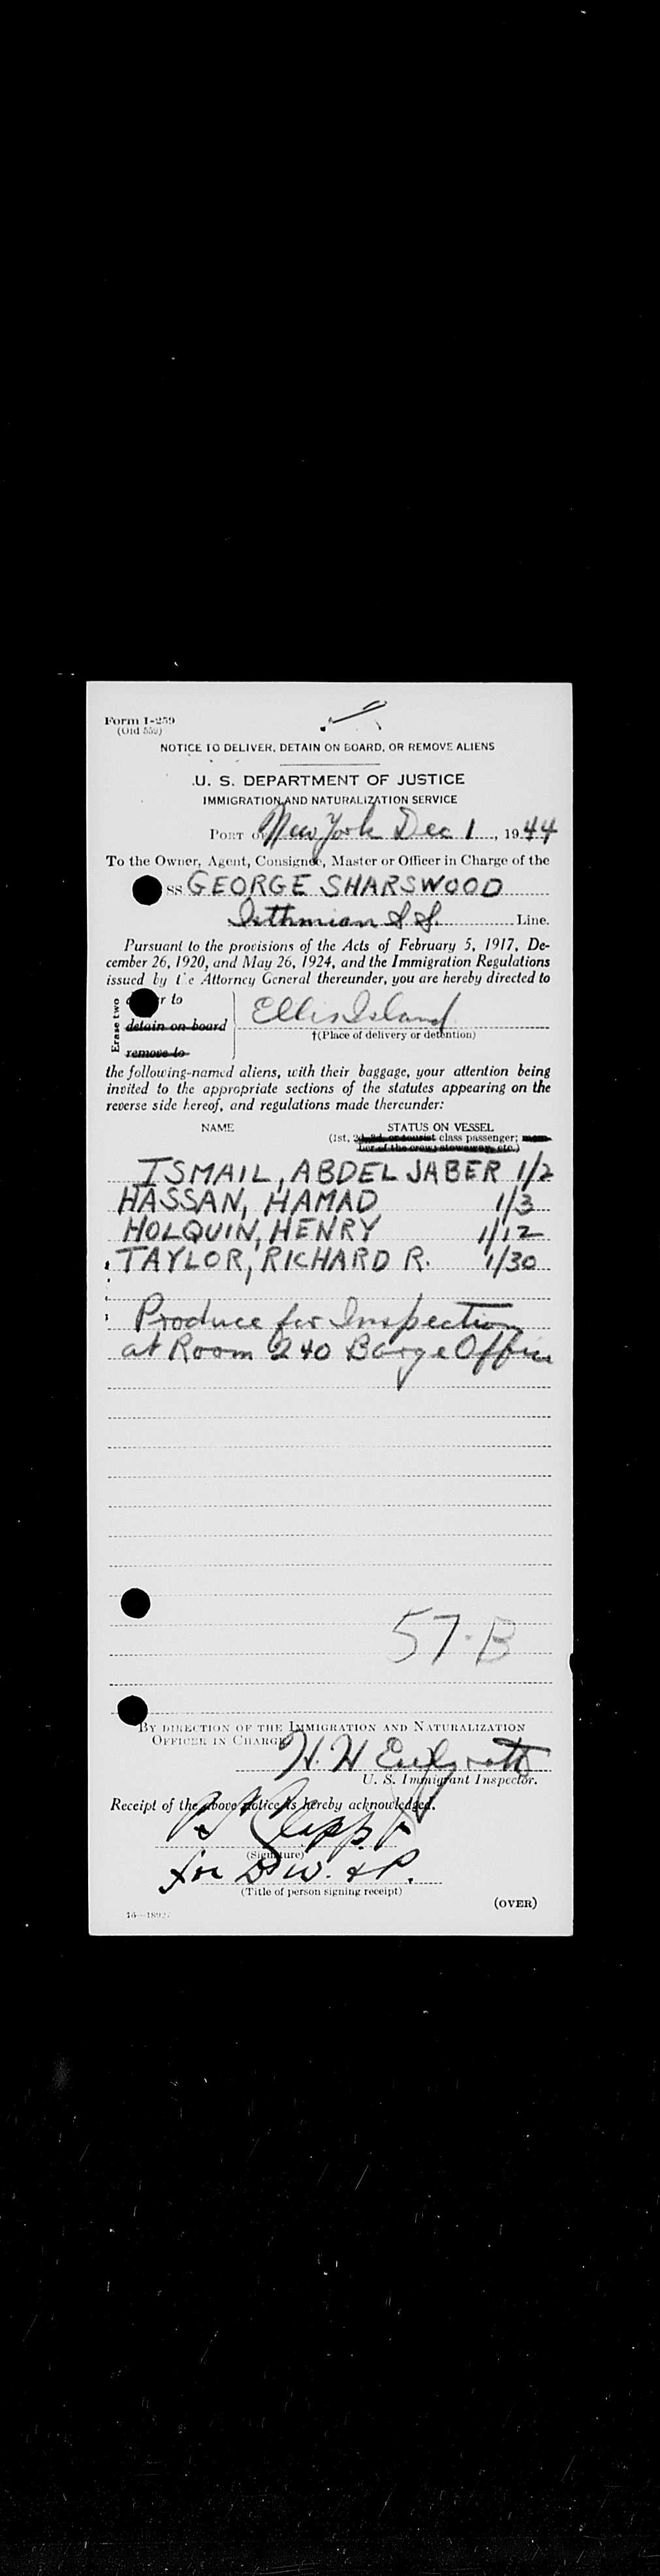 Form I-259
(Old 559)
NOTICE TO DELIVER, DETAIN ON BOARD, OR REMOVE ALIENS
U. S. DEPARTMENT OF JUSTICE
IMMIGRATION AND NATURALIZATION SERVICE
PORT OF New York Dec 1, 1944
To the Owner, Agent, Consignee, Master or Officer in Charge of the
SS GEORGE SHARSWOOD
Isthmian S.S. Line.
Pursuant to the provisions of the Acts of February 5, 1917, De-
cember 26, 1920, and May 26, 1924, and the Immigration Regulations
issued by the Attorney General thereunder, you are hereby directed to
Erase two
to
detain on board
remove to
Ellis Island
†(Place of delivery or detention)
the following-named aliens, with their baggage, your attention being
invited to the appropriate sections of the statutes appearing on the
reverse side hereof, and regulations made thereunder:
NAME STATUS ON VESSEL
(1st, 2d, 3d, or tourist class passenger; mem-
ber of the crew; stowaway, etc.)
ISMAIL, ABDEL JABER 1/2
HASSAN, HAMAD 1/3
HOLQUIN, HENRY 1/12
TAYLOR, RICHARD R. 1/30
Produce for Inspection
at Room 240 Barge Office
57-B
BY DIRECTION OF THE IMMIGRATION AND NATURALIZATION
OFFICER IN CHARGE
H. H
U. S. Immigrant Inspector.
Receipt of the above notice is hereby acknowledged.
(Signature)
for D. W. & P.
(Title of person signing receipt)
(OVER)